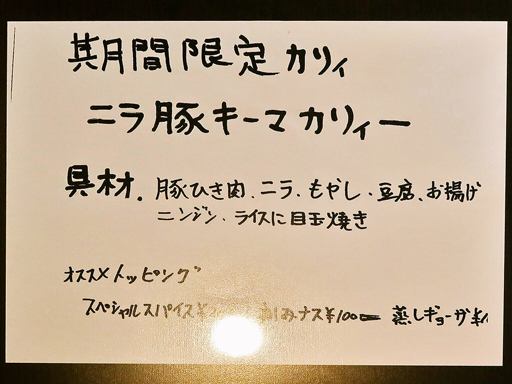 期間限定カリィ
ニラ豚キーマカリィー
具材. 豚ひき肉、ニラ、もやし、豆腐、お揚げ
ニンジン、ライスに目玉焼き
オススメトッピング
スペシャルスパイス¥ ナス¥100ー 蒸しギョーザ